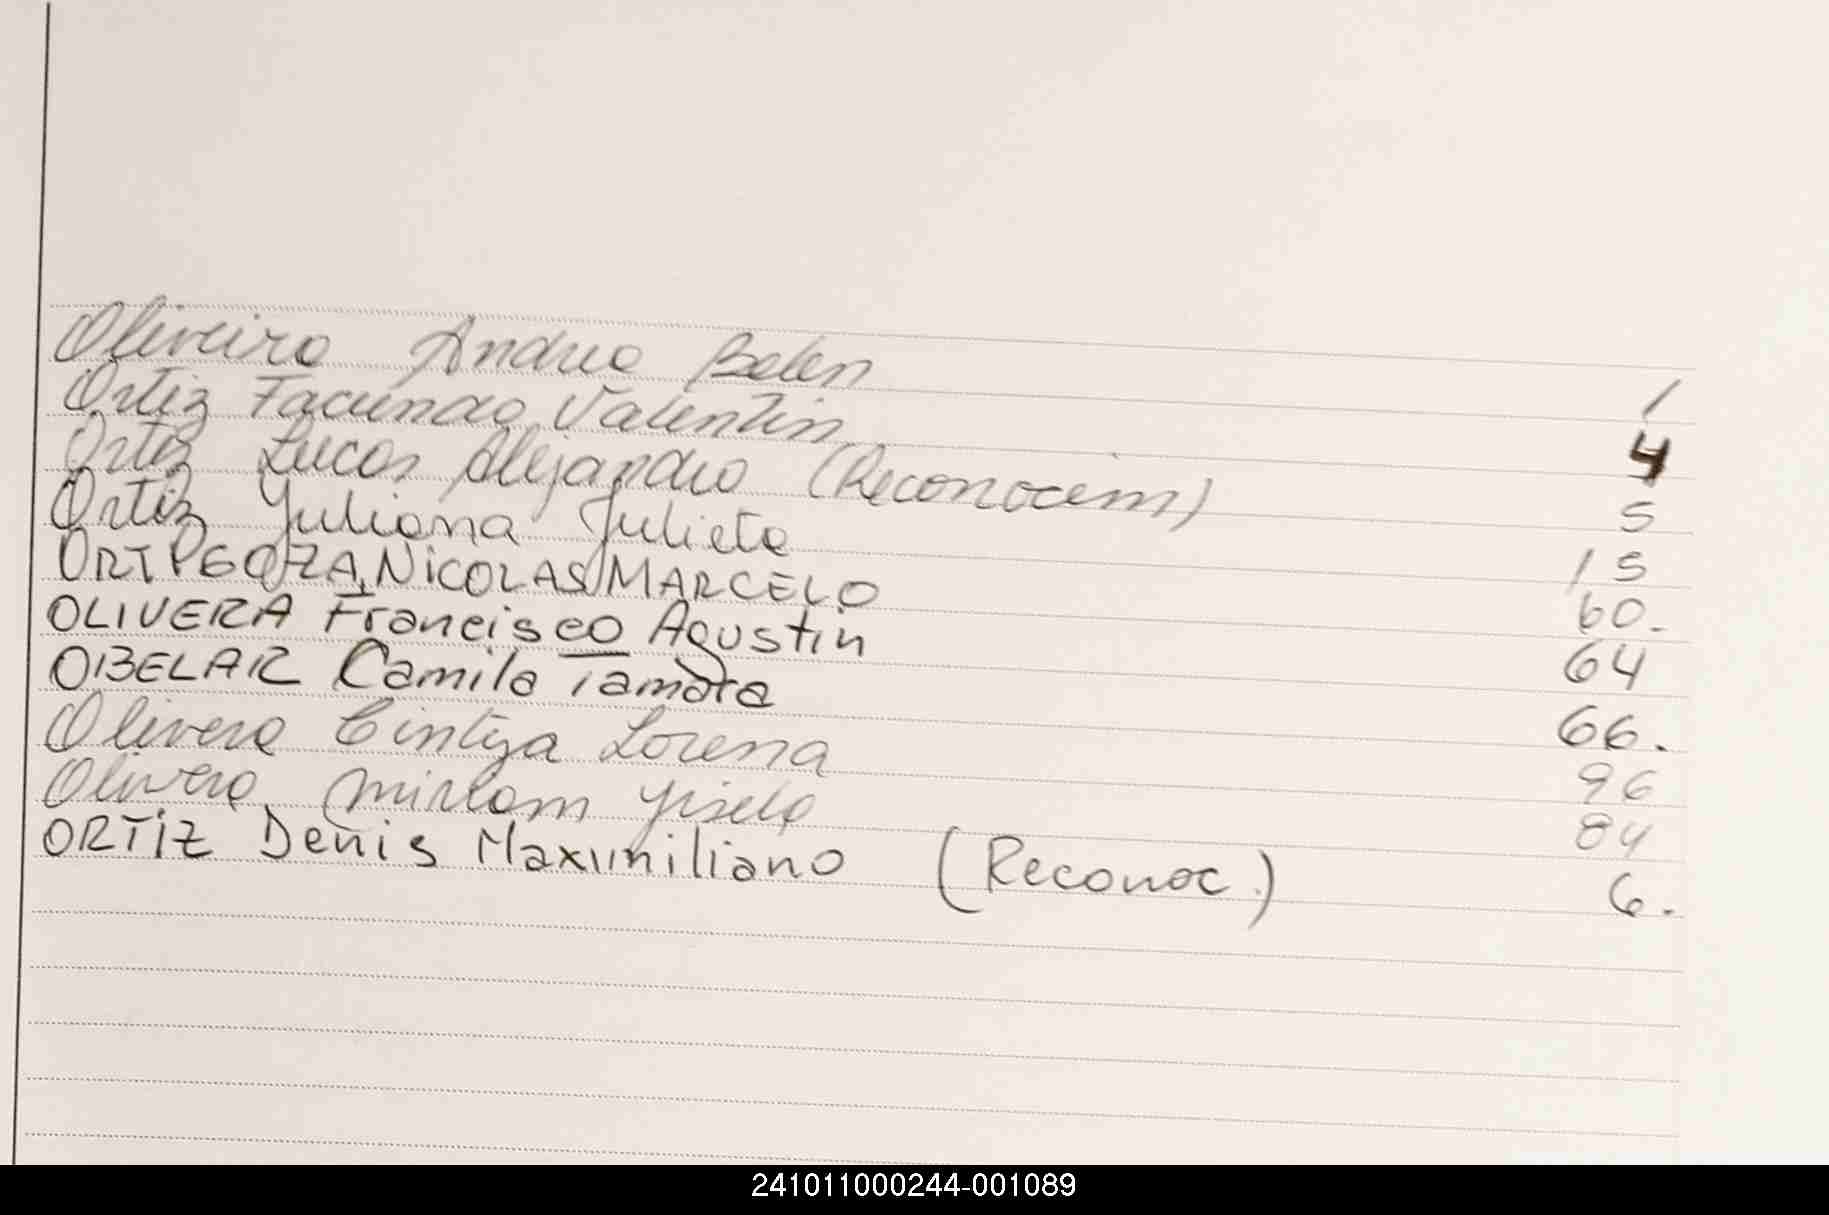 Oliveira Andrea Belen 1
Ortiz Facundo Valentin 4
Ortiz Lucas Alejandro (Reconocim) 5
Ortiz Yuliana Julieta 15
ORTIGOZA, NiCOLAS MARCELO 60.
OLIVERA Francisco Agustin 64
OBELAR Camila Tamara 66.
Olivera Cintya Lorena 96
Olivera Miriam Gisela 84
ORTIZ Denis Maximiliano (Reconoc.) 6.
241011000244-001089